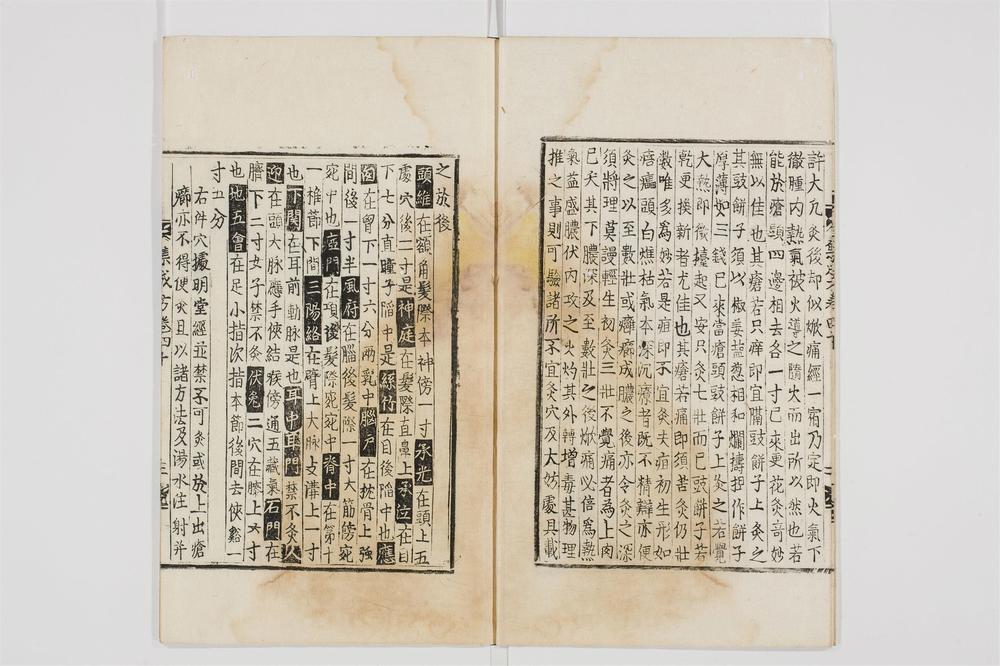 許大凢灸後却似㷔痛經一宿乃定即火氣下
徹腫内熱氣被火導之隨火而出所以然也若
能於瘡頭四邊相去各一寸已來更花灸奇妙
無以佳也其瘡若只痒即宜隔豉餠子上灸之
其豉餠子須以椒姜塩葱相和爛擣捏作餠子
厚薄如三錢已來當瘡頭豉餠子上灸之若覺
大熱即微擡起又安只灸七壯而已豉餠子若
乾更換新者尤佳也其瘡若痛即須若灸仍壯
數唯多爲妙若是疽即不宜灸夫疽初生形如
痦㿔頭白燋枯氣本深沉療者旣不精辯亦便
灸之以至數壯或癰癤成膿之後亦令灸之深
須將理莫謾輕生初灸三壯不覺痛者爲上肉
已夭其下膿深及至數壯之後㷔痛必倍爲熱
氣益盛膿伏内攻之火灼其外轉增毒甚物理
推之事則可驗諸所不宜灸穴及大妨處具載
之於後
頭維在額角髮際本神傍一寸承光在頭上五
處穴後一寸是神庭在髮際直鼻上承泣在目
下七分直瞳子䧟中是絲竹在目後䧟中也應
窓在胷下一寸六分兩乳中腦戶在枕骨上強
間後一寸半風府在腦後髮際一寸大筋傍宛
宛中也瘂門在項後髮際宛宛中脊中在第十
一椎節下間三陽絡在臂上大脉支溝上一寸
也下関在耳前動脉是也耳中耳門禁不灸人
迎在頭大脉應手俠結㗋傍通五藏氣石門在
臍下二寸女子禁不灸伏兎二穴在膝上六寸
也地五會在足小指次指本節後間去俠谿一
寸五分
右件穴據明堂經並禁不可灸或於上出瘡
癤亦不得便灸且以諸方法及湯水注射并
集成方卷四十